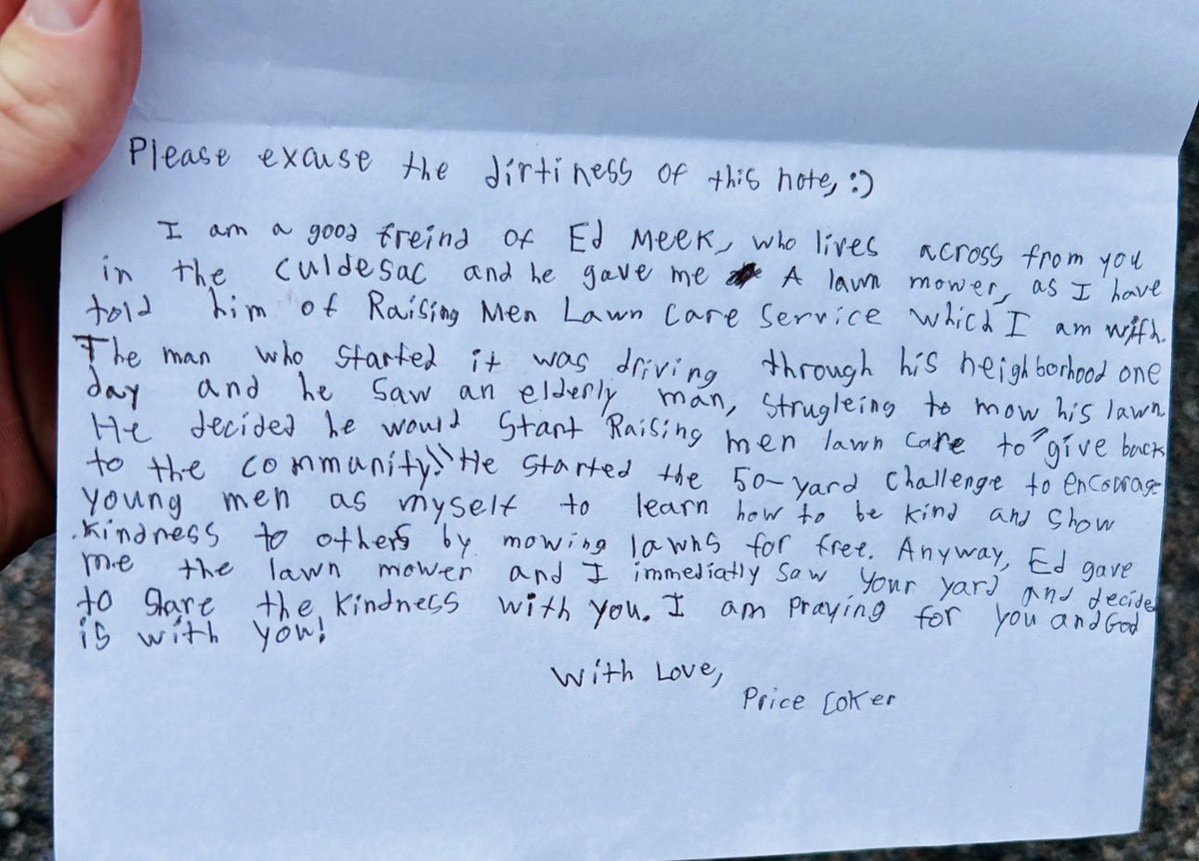 Please excuse the dirtiness of this note, :)
I am a good freind of Ed Meek, who lives across from you
in the culdesac and he gave me A lawn mower, as I have
told him of Raising Men Lawn Care Service which I am with.
The man who started it was driving through his neighborhood one
day and he saw an elderly man, strugleing to mow his lawn
He decided he would Start Raising men lawn care to "give back
to the community." He started the 50-yard challenge to encourage
young men as myself to learn how to be kind and show
kindness to others by mowing lawns for free. Anyway, Ed gave
me the lawn mower and I immediatly saw your yard and decided
to share the kindness with you. I am praying for you and God
is with you!
With Love,
Price Coker